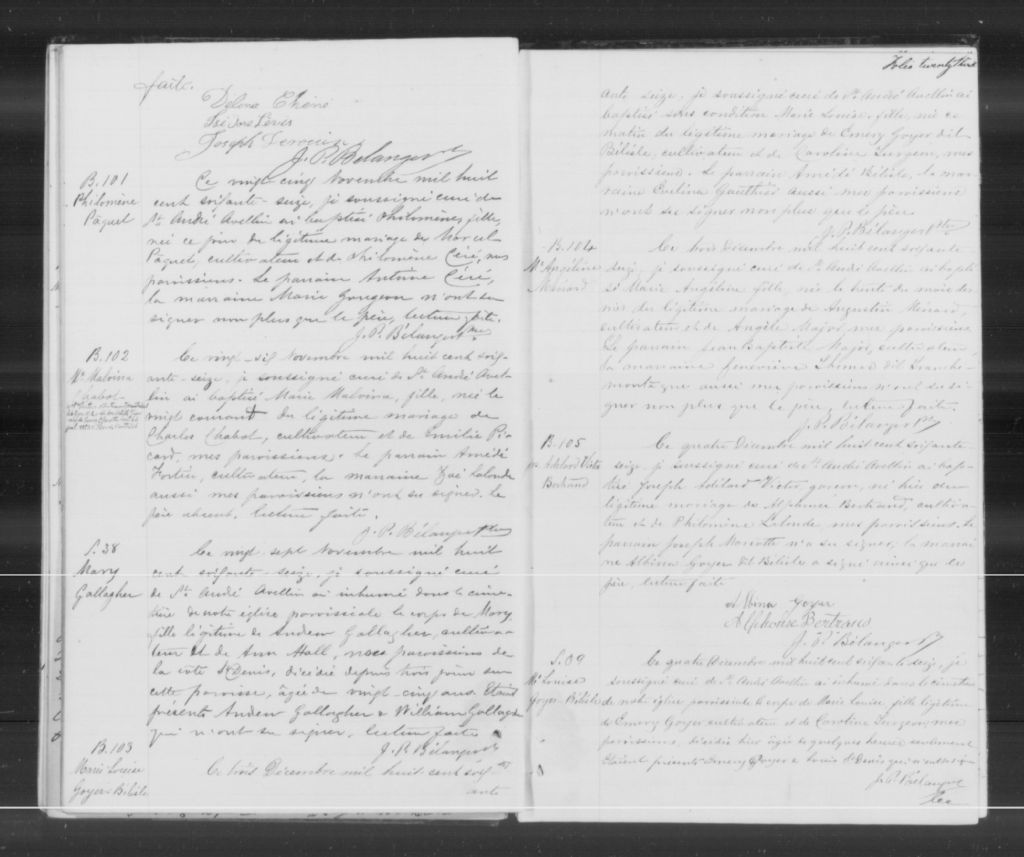 faite.
Delona Chéné
Isidore
Joseph
J. P. Bélanger Ptre
B. 101
Philomène
Paquet
Ce vingt-cinq Novembre mil huit
cent soixante-seize, je soussigné curé de
St. André Avellin ai baptisé Philomène, fille,
née ce jour du légitime mariage de Marcel
Paquet, cultivateur et de Philomène Céré, mes
paroissiens. Le parrain Antoine Céré,
la marraine Marie Gougeon n'ont su
signer non plus que le père, lecture faite.
J. P. Bélanger Ptre
B. 102
Me Malvina
Chabot
Ce vingt-six Novembre mil huit cent soix-
ante-seize, je soussigné curé de St. André Avel-
lin ai baptisé Marie Malvina, fille, née le
vingt courant du légitime mariage de
Charles Chabot, cultivateur, et de Emilie Pi-
card, mes paroissiens. Le parrain Amédé
Fortier, cultivateur, la marraine Zoé Lalonde
aussi mes paroissiens n'ont su signer. le
père absent. lecture faite.
J. P. Bélanger Ptre
S. 38
Mary
Gallagher
Ce vingt-sept Novembre mil huit
cent-soixante-seize, je soussigné curé
de St. André Avellin ai inhumé dans le cime-
tière de notre église paroissiale le corps de Mary
fille légitime de Andrew Gallagher, cultiva-
teur et de Ann Hall, mes paroissiens de
la côte St Denis, décédée depuis trois jours sur
cette paroisse, âgée de vingt-cinq ans. Étaient
présents Andrew Gallagher & William Gallagher
qui n'ont su signer. lecture faite
J. P. Bélanger Ptre
B. 103
Marie Louise
Goyer-Bélisle
Ce trois Décembre mil huit cent soix-
ante
Folio twenty third
ante seize, je soussigné curé de St. André Avellin ai
baptisé sous condition Marie Louise, fille, née ce
matin du légitime mariage de Emery Goyer dit
Bélisle, cultivateur et de Caroline Surgeon, mes
paroissiens. Le parrain Amédé Bélisle, la mar-
raine Exilina Gauthier aussi mes paroissiens
n'ont su signer non plus que le père.
J. P. Bélanger Ptre
B. 104
Me Angélina
Ménard
Ce trois Décembre mil huit cent soixante
seize, je soussigné curé de St. André Avellin ai bapti-
sé Marie Angélina fille, née le trente du mois der-
nier, du légitime mariage de Augustin Ménard,
cultivateur et de Angèle Major, mes paroissiens
Le parrain Jean Baptiste Major, cultivateur,
la marraine Geneviève Thomas dit Tranche-
montagne aussi mes paroissiens n'ont su si-
gner non plus que le père, lecture faite.
J. P. Bélanger Ptre
B. 105
Jos. Adélard Victor
Bertrand
Ce quatre Décembre mil huit cent soixante
seize, je soussigné curé de St. André Avellin ai bap-
tisé Joseph Adélard Victor garçon, né hier du
légitime mariage de Alphonse Bertrand, cultiva-
teur et de Philomène Lalonde, mes paroissiens. Le
parrain Joseph Mariotte n'a su signer, la marrai-
ne Albina Goyer dit Bélisle a signé ainsi que le
père, lecture faite
Albina Goyer
Alphonse Bertrand
J. P. Bélanger Ptre
S. 39
Me Louise
Goyer-Bélisle
Ce quatre Décembre mil huit cent soixante seize, je
soussigné curé de St. André Avellin ai inhumé dans le cimetière
de notre église paroissiale le corps de Marie Louise, fille légitime
de Emery Goyer cultivateur et de Caroline Surgeon mes
paroissiens, décédée hier âgée de quelques heures seulement
Étaient présents Emery Goyer & Louis St Denis qui n'ont su signer
J. P. Bélanger